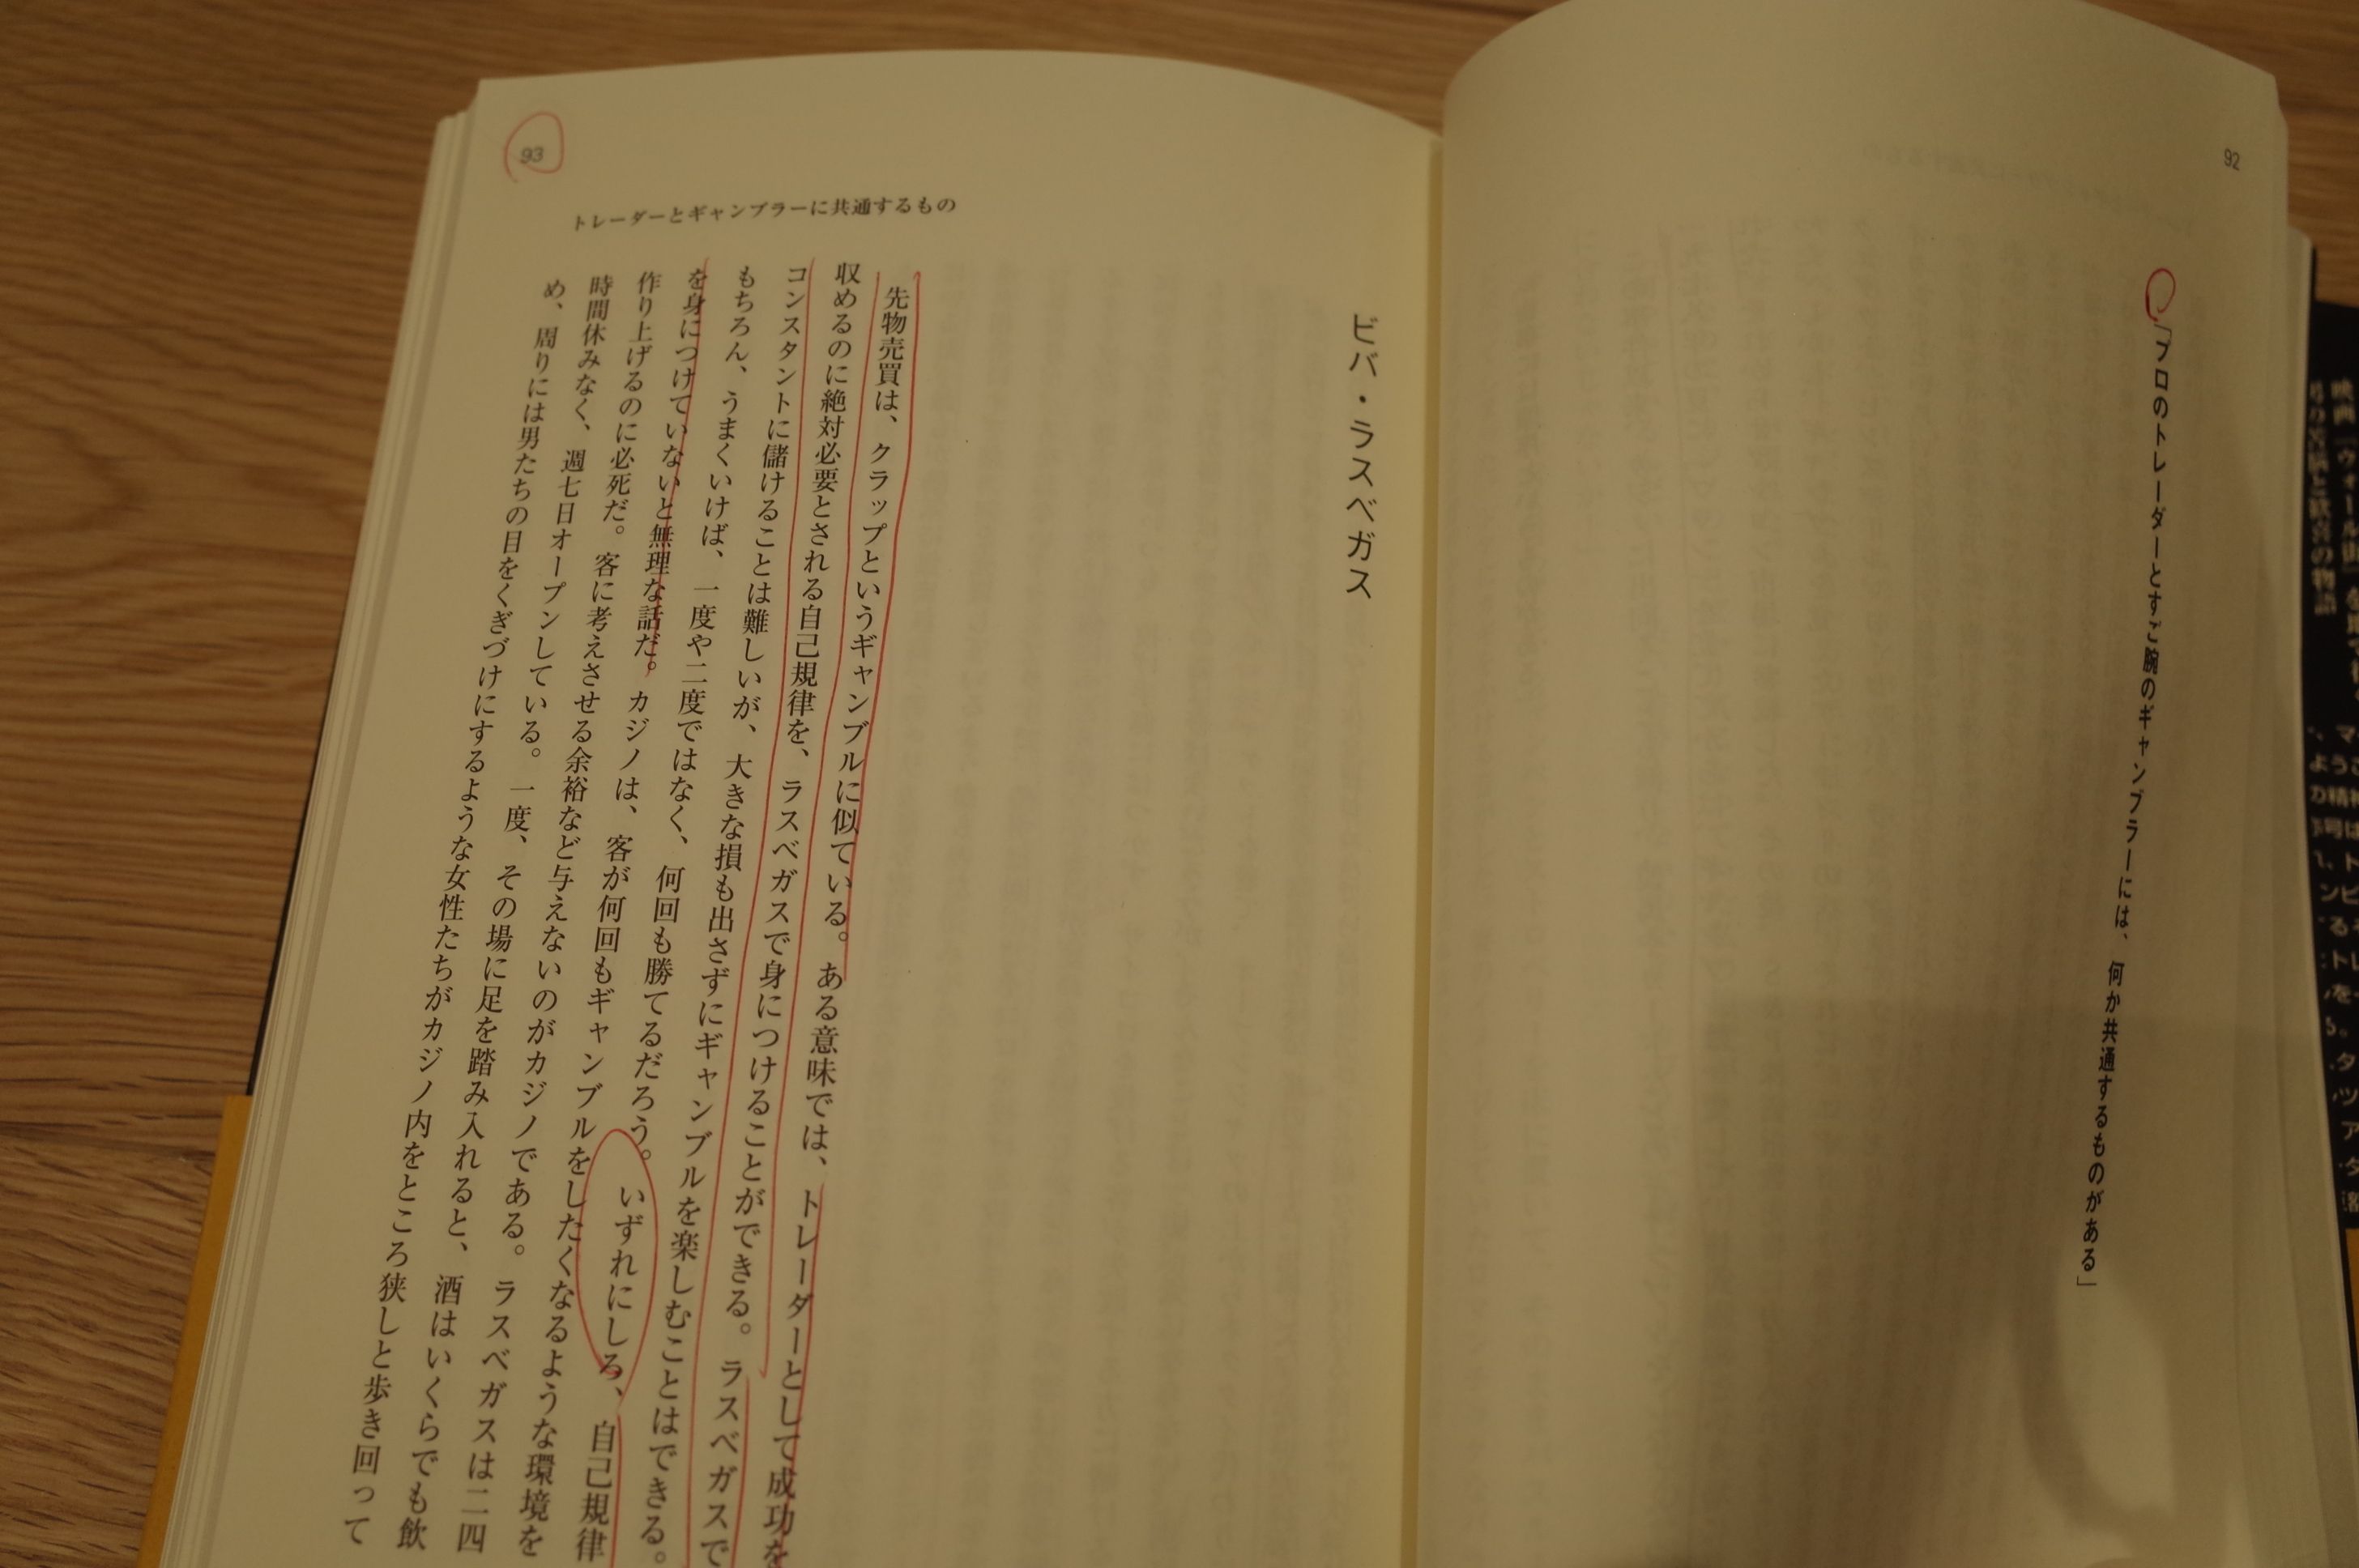 92
「プロのトレーダーとすご腕のギャンブラーには、何か共通するものがある」
ビバ・ラスベガス
93
トレーダーとギャンブラーに共通するもの
先物売買は、クラップというギャンブルに似ている。ある意味では、トレーダーとして成功を
収めるのに絶対必要とされる自己規律を、ラスベガスで身につけることができる。ラスベガスで
コンスタントに儲けることは難しいが、大きな損も出さずにギャンブルを楽しむことはできる。
もちろん、うまくいけば、一度や二度ではなく、何回も勝てるだろう。いずれにしろ、自己規律
を身につけていないと無理な話だ。カジノは、客が何回もギャンブルをしたくなるような環境を
作り上げるのに必死だ。客に考えさせる余裕など与えないのがカジノである。ラスベガスは二四
時間休みなく、週七日オープンしている。一度、その場に足を踏み入れると、酒はいくらでも飲
め、周りには男たちの目をくぎづけにするような女性たちがカジノ内をところ狭しと歩き回って